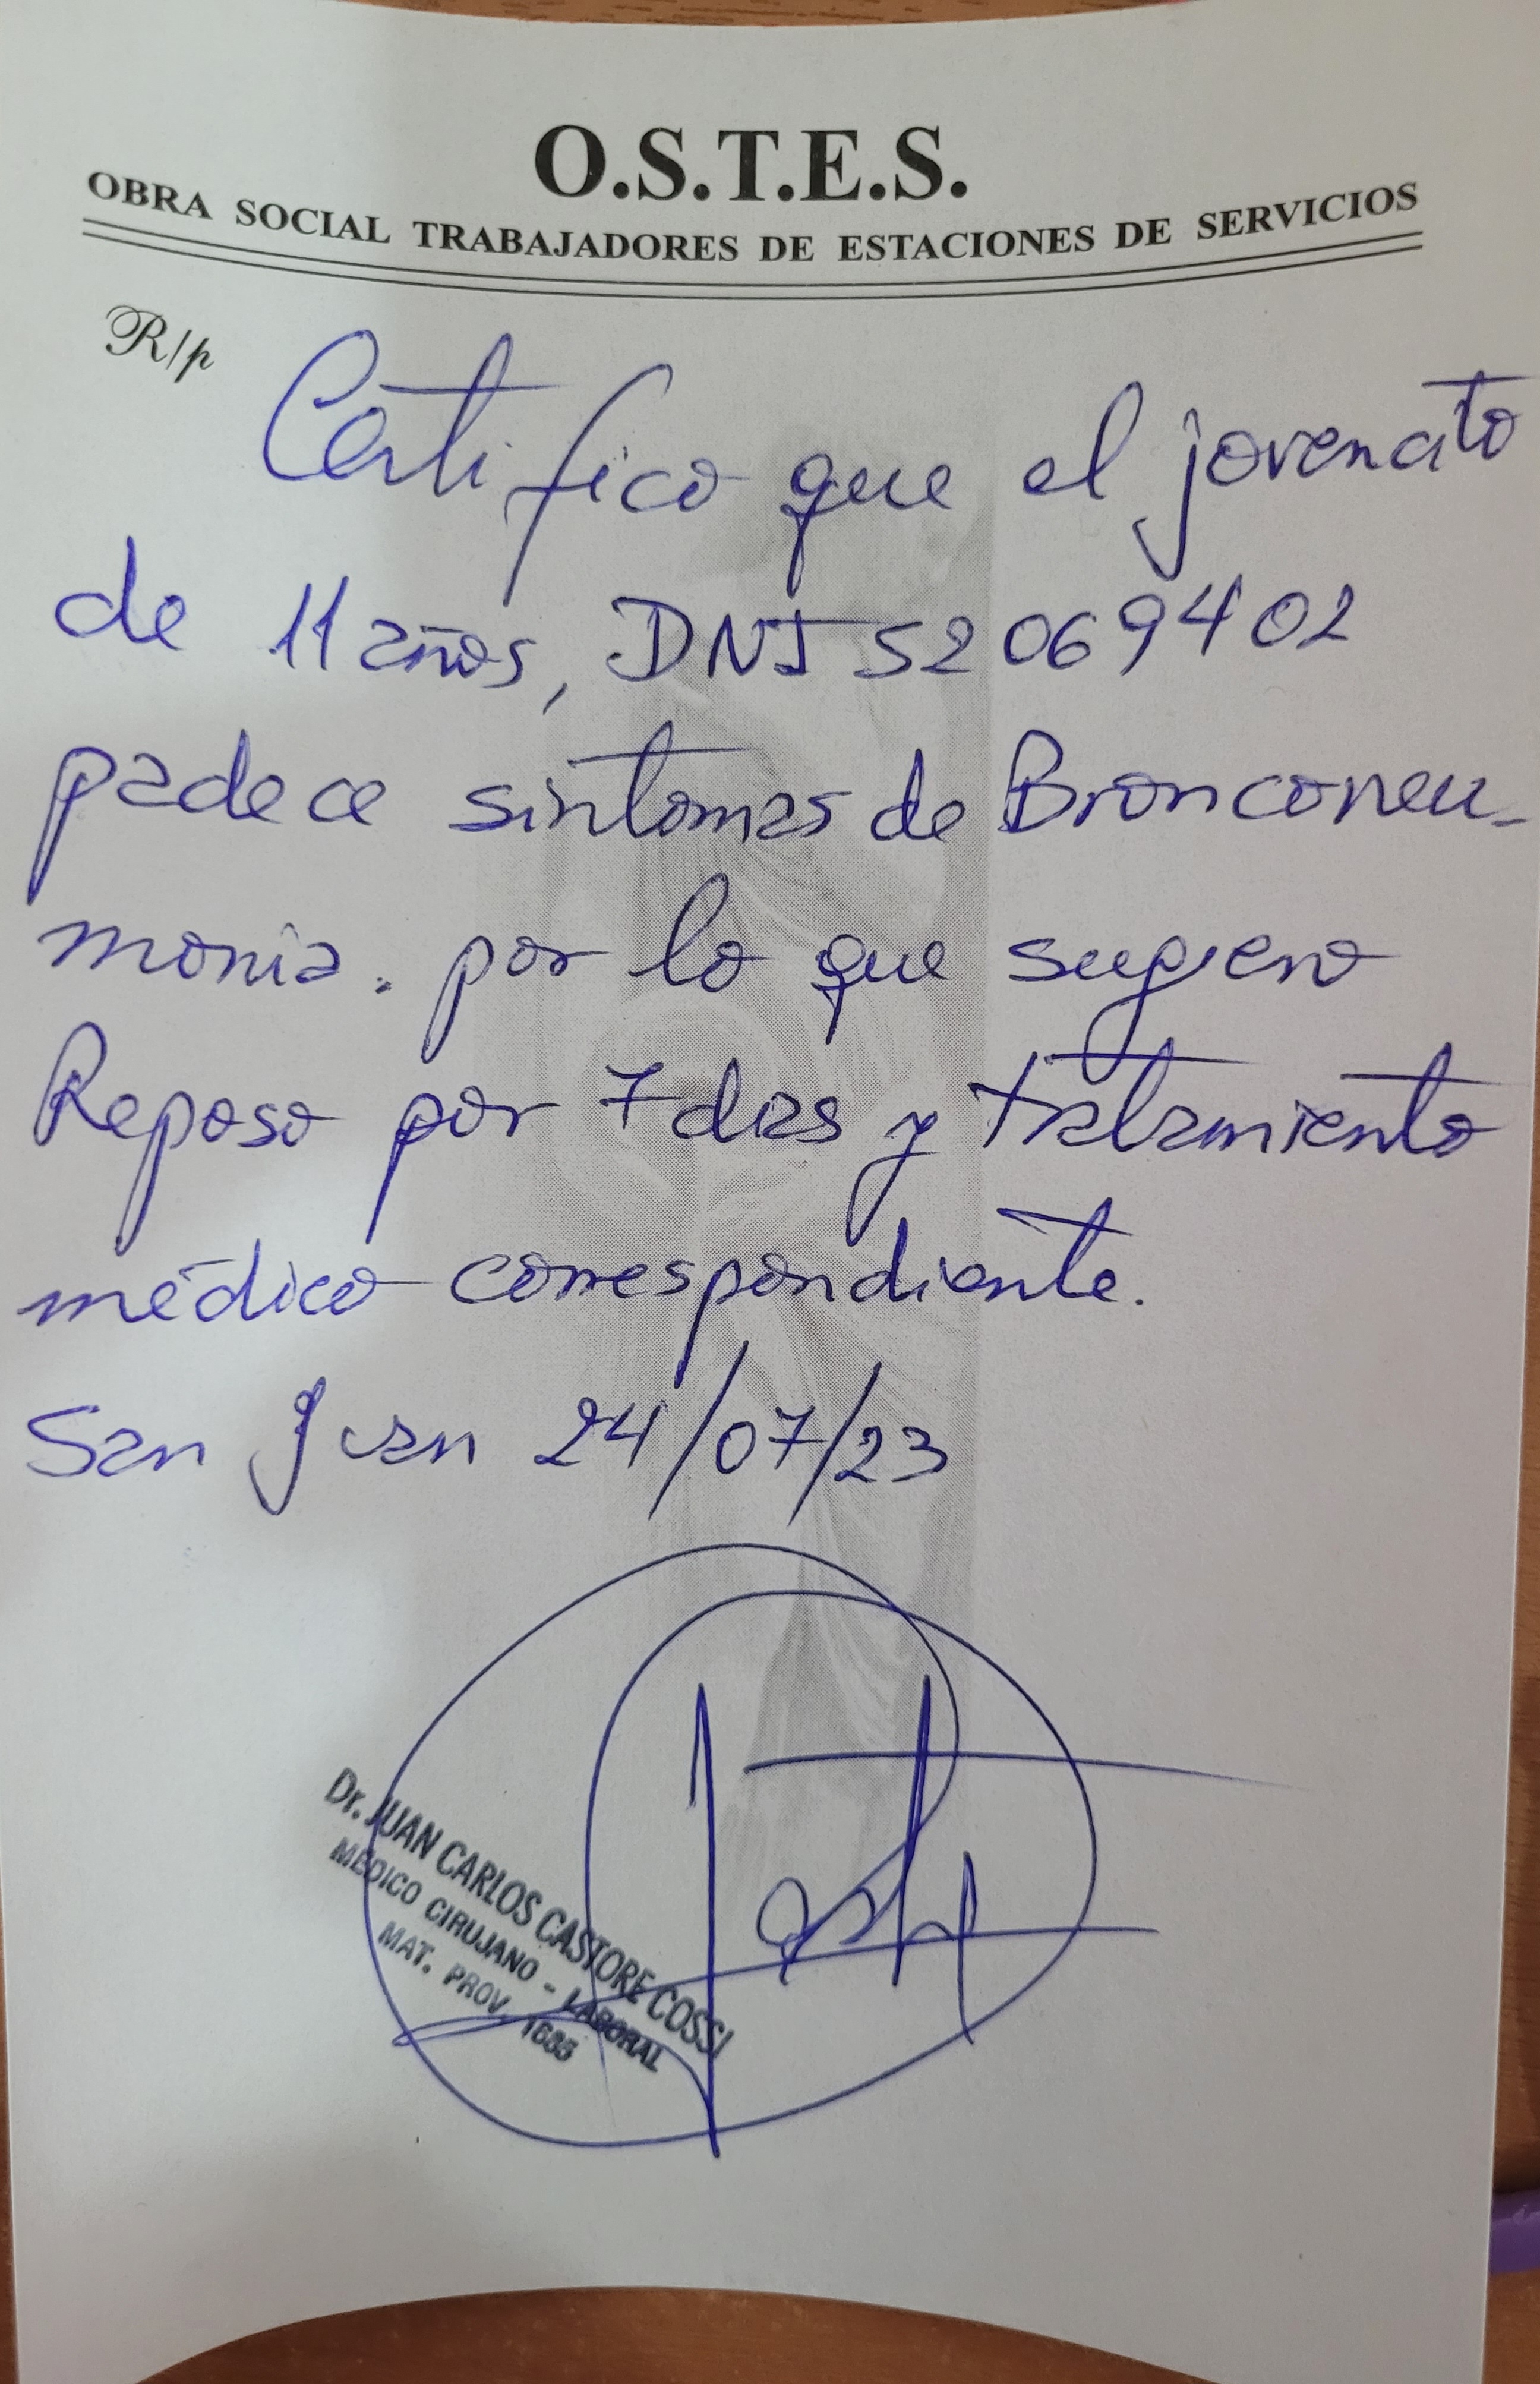 O.S.T.E.S.
OBRA SOCIAL TRABAJADORES DE ESTACIONES DE SERVICIOS
R/p
Certifico que el jovencito
de 11 años, DNI 52069402
padece sintomas de Bronconeu-
monia. por lo que sugiero
Reposo por 7 dias y tratamiento
médico correspondiente.
San Juan 24/07/23
Dr. JUAN CARLOS CASTORE COSSI
MEDICO CIRUJANO - LABORAL
MAT. PROV. 1685